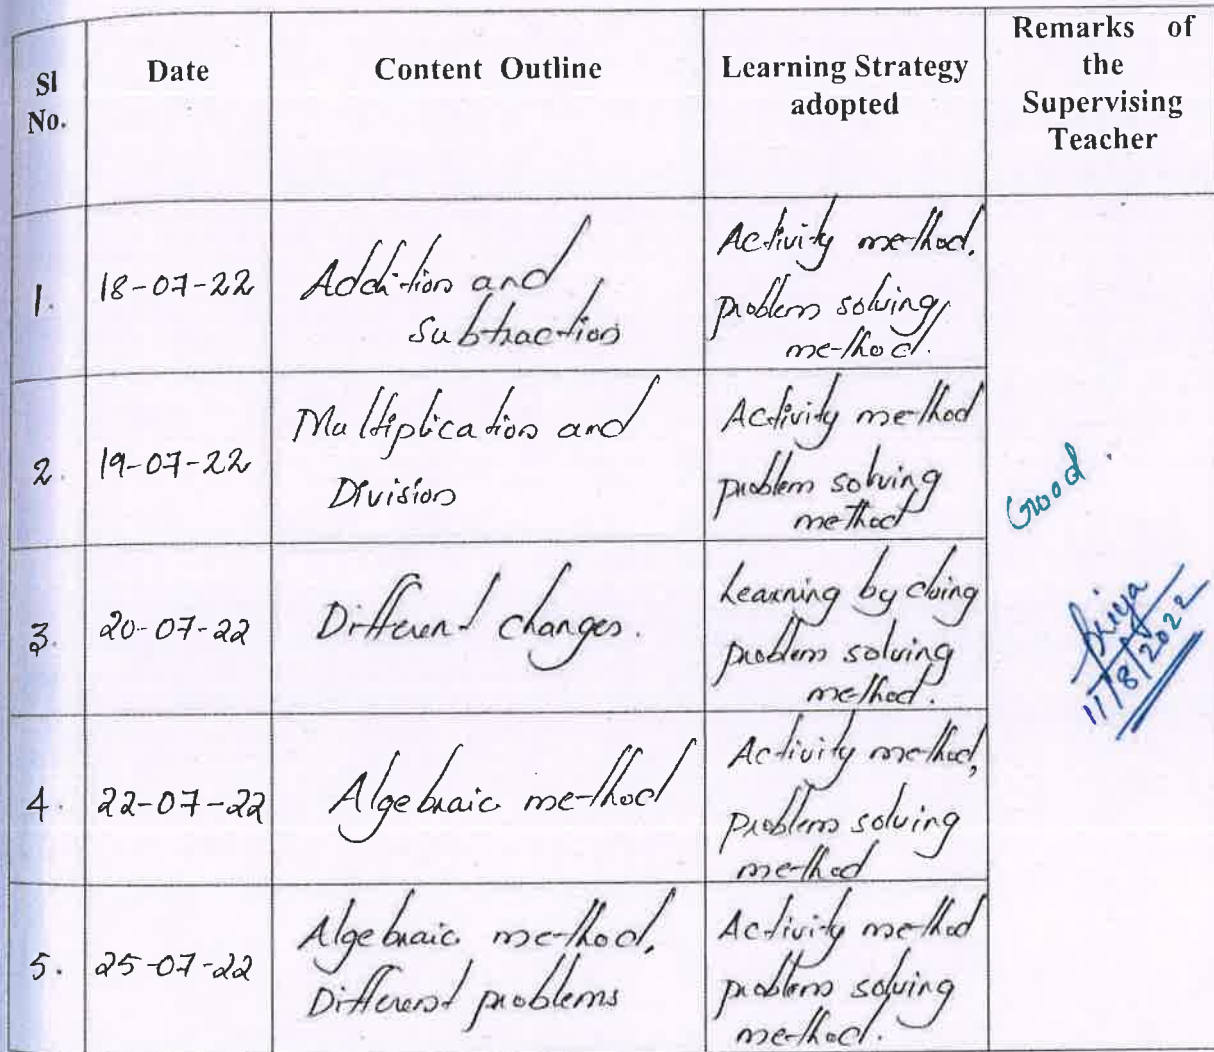 Sl No.
Date
Content Outline
Learning Strategy
adopted
Remarks of
the
Supervising
Teacher
1.
18-07-22
Addition and
Subtraction
Activity method,
problem solving
method.
2.
19-07-22
Multiplication and
Division
Activity method
problem solving
method
Good.
3.
20-07-22
Different changes.
Learning by doing
problem solving
method.
11/8/2022
4.
22-07-22
Algebraic method
Activity method,
problem solving
method
5.
25-07-22
Algebraic method,
Different problems
Activity method
problem solving
method.